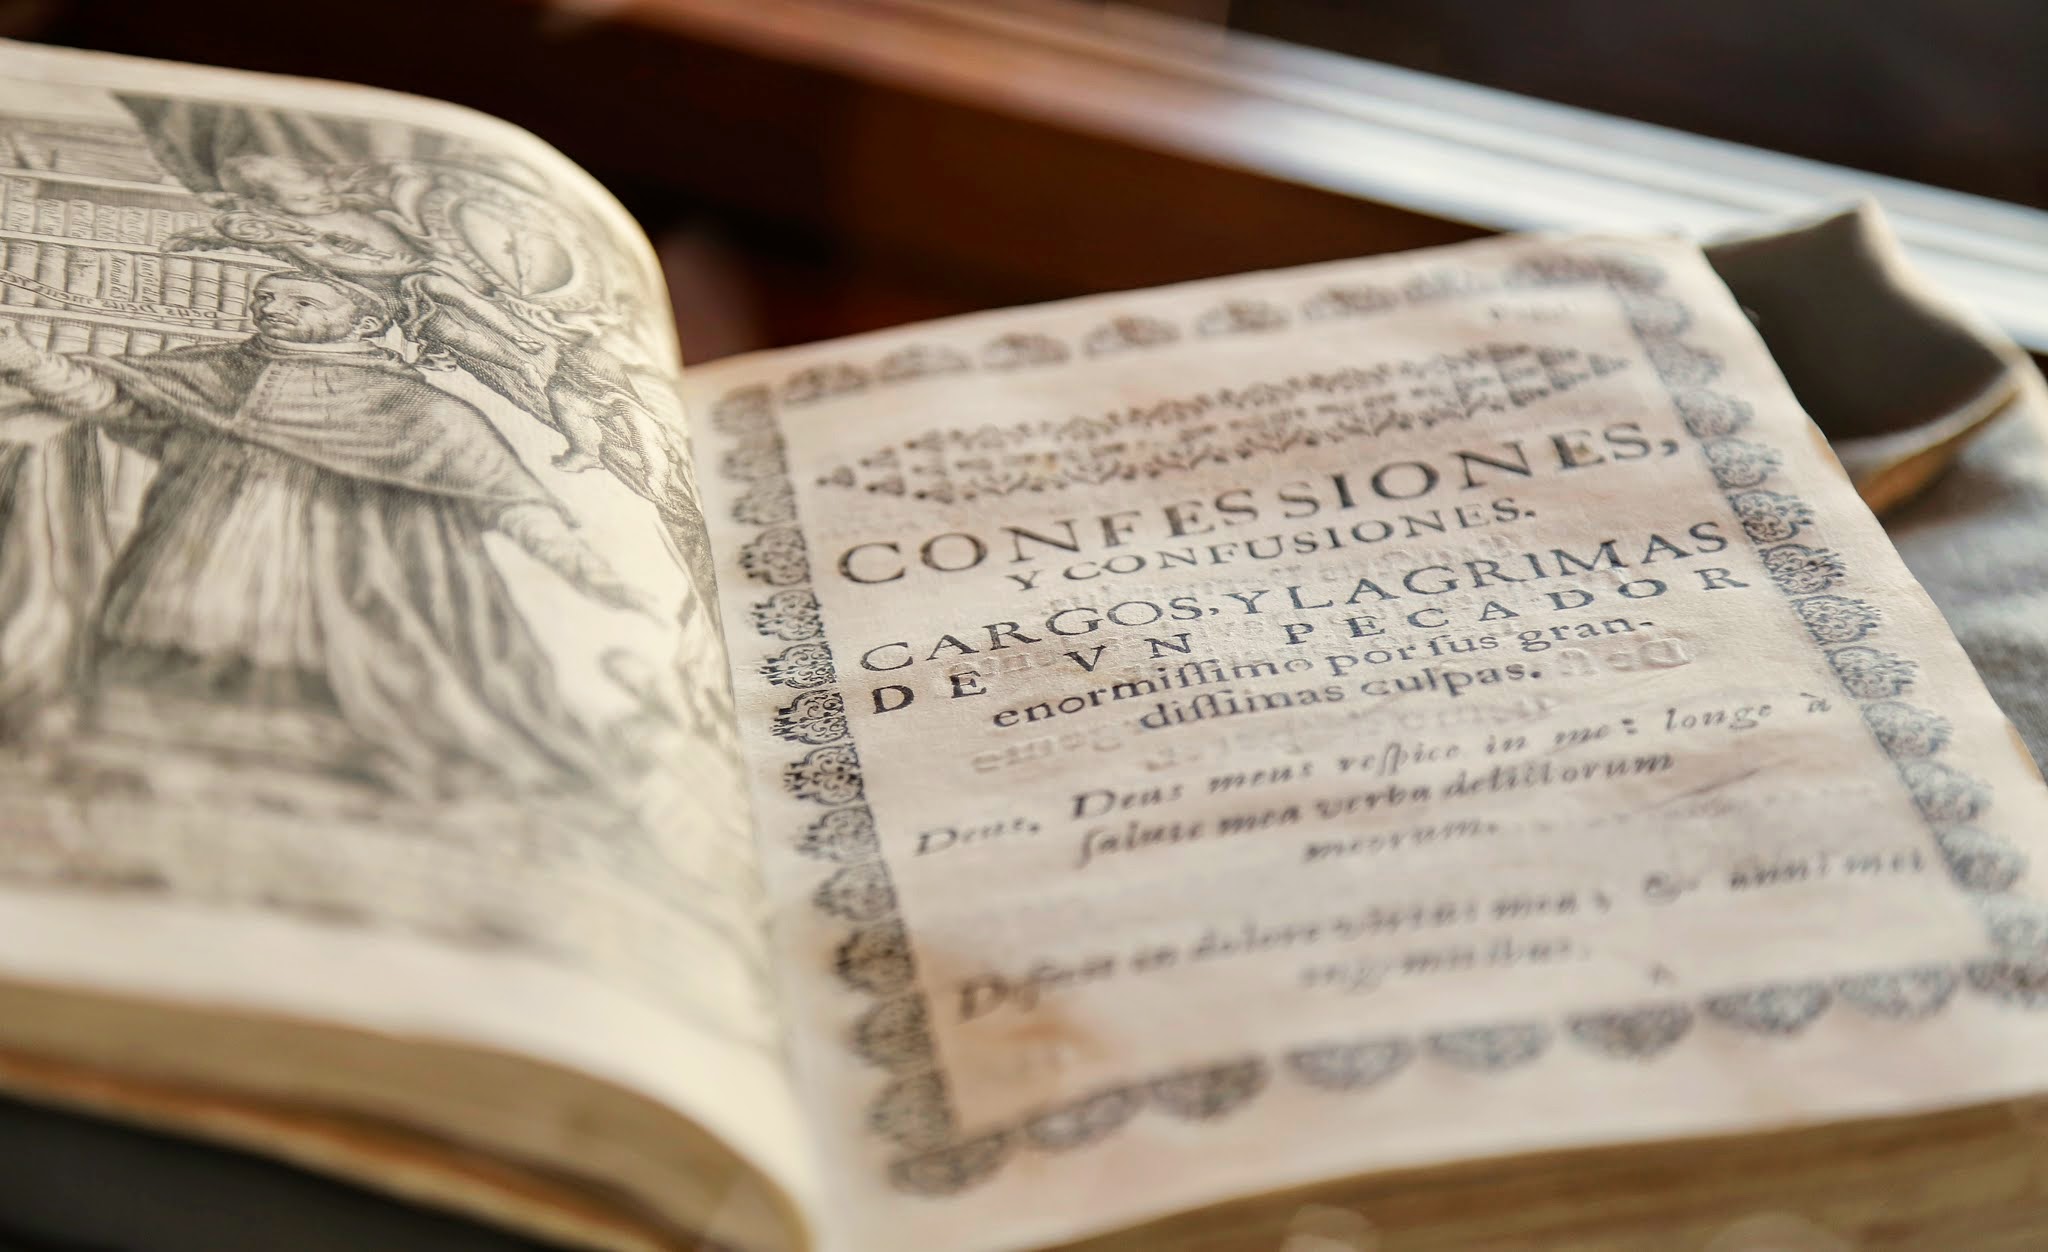 CONFESSIONES,
Y CONFUSIONES.
CARGOS, Y LAGRIMAS
DE VN PECADOR
enormiſſimo por ſus gran-
diſſimas culpas.
Deus, Deus meus reſpice in me: longe à
ſalute mea verba delictorum
meorum.
in dolore vita mea, & anni mei